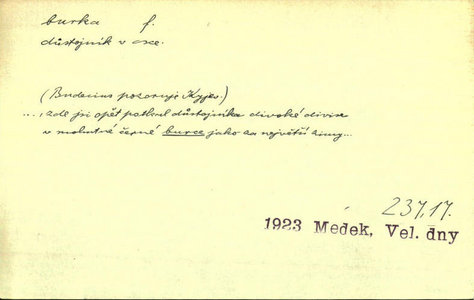 burka f.
důstojník v
(Budecius pozoruje Kyjev.)
..., zde jsi opět potkal důstojníka divoké divise
v mohutné černé burce jako za největší zimy...
237,17.
1923 Medek, Vel. dny